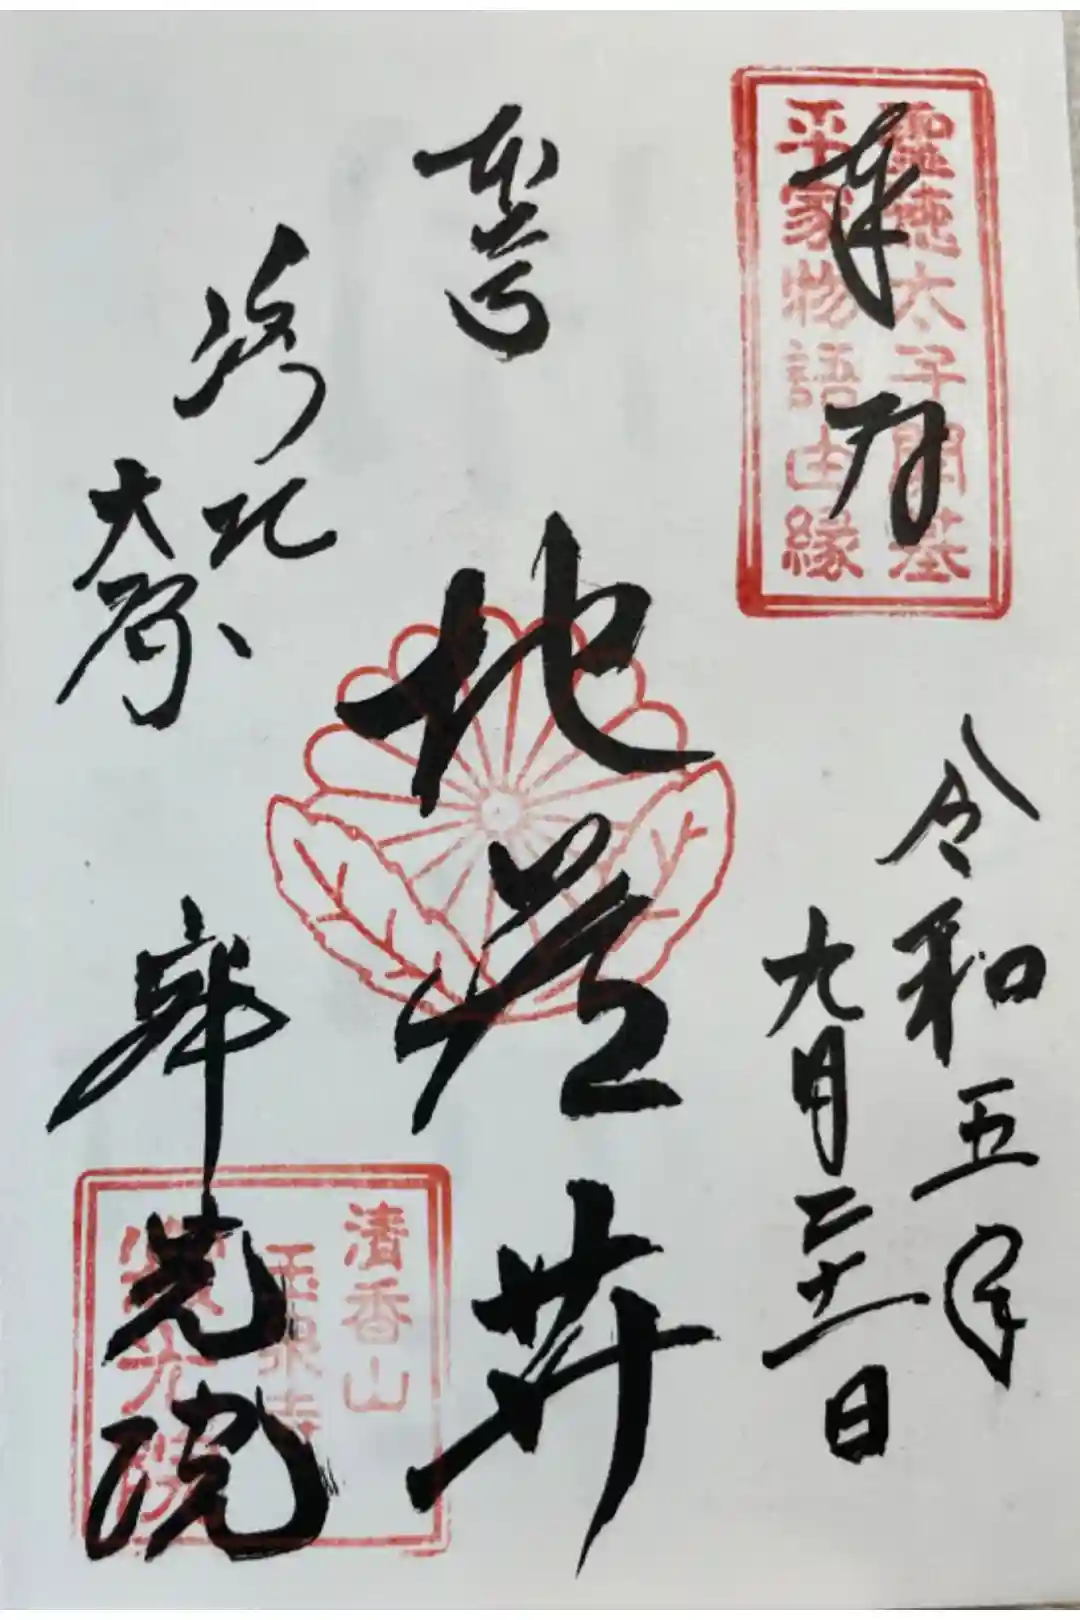 聖徳太子開基
平家物語由縁
奉拝
令和五年
九月二十一日
地蔵𦬇
洛北
大原
寂光院
清香山
玉泉寺
寂光院